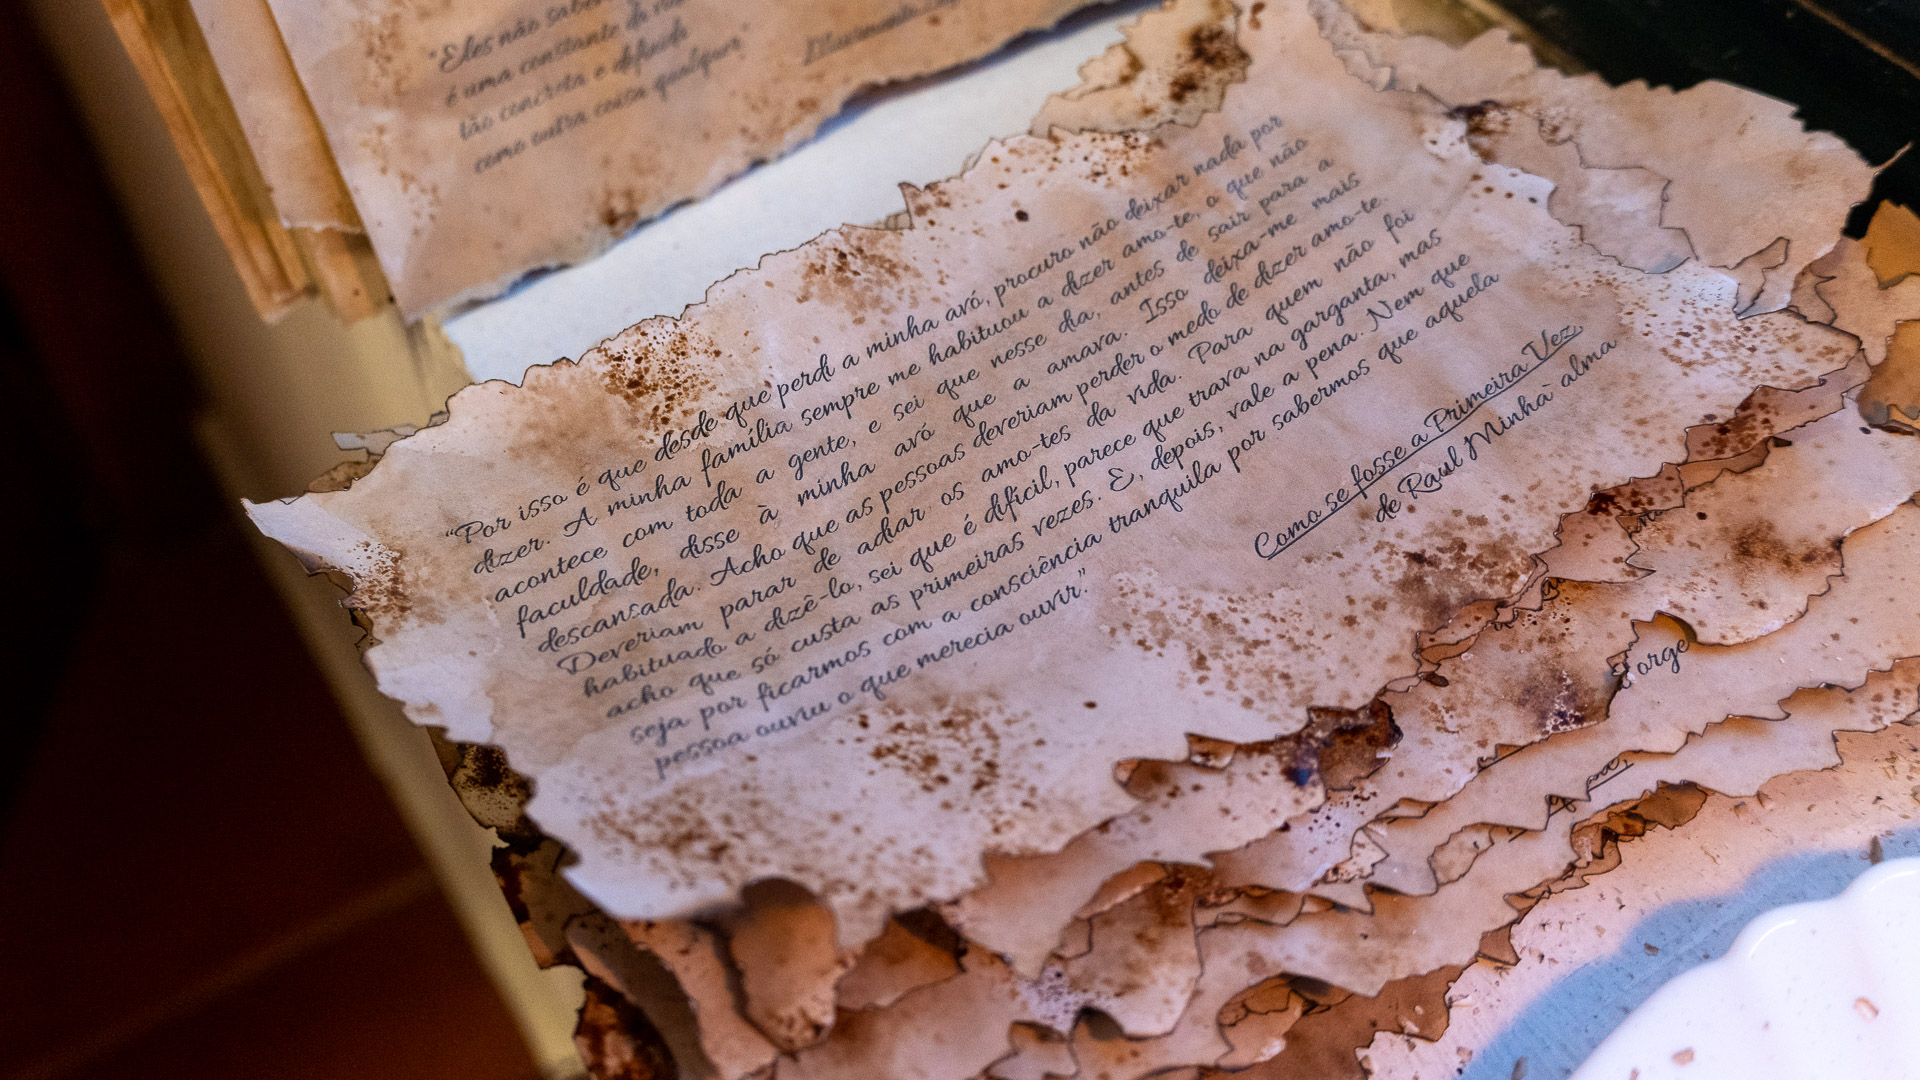 "Eles não sabem
é uma constante da vida
tão concreta e definida
como outra coisa qualquer"
Movimento
"Por isso é que desde que perdi a minha avó, procuro não deixar nada por
dizer. A minha família sempre me habituou a dizer amo-te, o que não
acontece com toda a gente, e sei que nesse dia, antes de sair para a
faculdade, disse à minha avó que a amava. Isso deixa-me mais
descansada. Acho que as pessoas deveriam perder o medo de dizer amo-te.
Deveriam parar de adiar os amo-tes da vida. Para quem não foi
habituado a dizê-lo, sei que é difícil, parece que trava na garganta, mas
acho que só custa as primeiras vezes. E, depois, vale a pena. Nem que
seja por ficarmos com a consciência tranquila por sabermos que aquela
pessoa ouviu o que merecia ouvir."
Como se fosse a Primeira Vez,
de Raul Minh'alma
Jorge